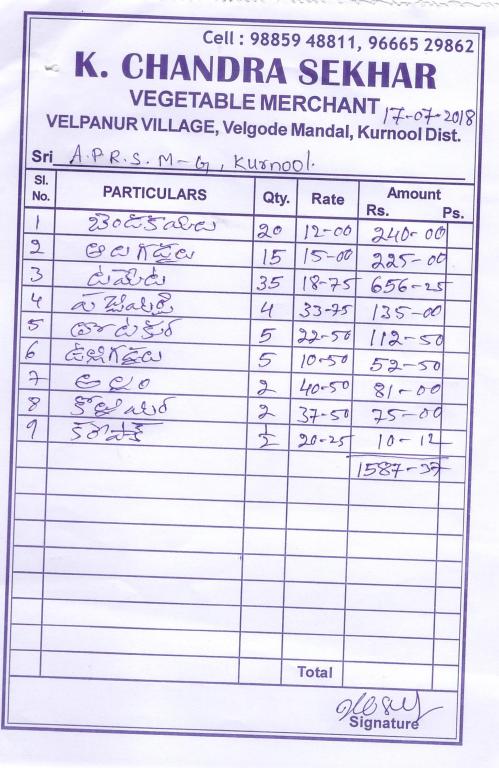 Cell : 98859 48811, 96665 29862
K. CHANDRA SEKHAR
VEGETABLE MERCHANT 17-07-2018
VELPANUR VILLAGE, Velgode Mandal, Kurnool Dist.
Sri A.P.R.S. M-G, Kurnool.
Sl. No. PARTICULARS Qty. Rate Amount Rs. Ps.
1 బెండకాయలు 20 12-00 240-00
2 ఆలుగడ్డలు 15 15-00 225-00
3 టమోట 35 18-75 656-25
4 పచ్చిమిర్చి 4 33-75 135-00
5 తోటకూర 5 22-50 112-50
6 ఉల్లిగడ్డలు 5 10-50 52-50
7 అల్లం 2 40-50 81-00
8 కొత్తిమీర 2 37-50 75-00
9 కరేపాక్ ½ 20-25 10-12
1587-37
Total
Signature